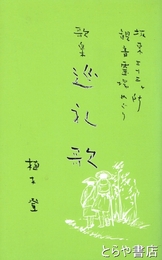 坂東三十三ヶ所
観音霊場めぐり
歌集 巡礼歌
とらや書店